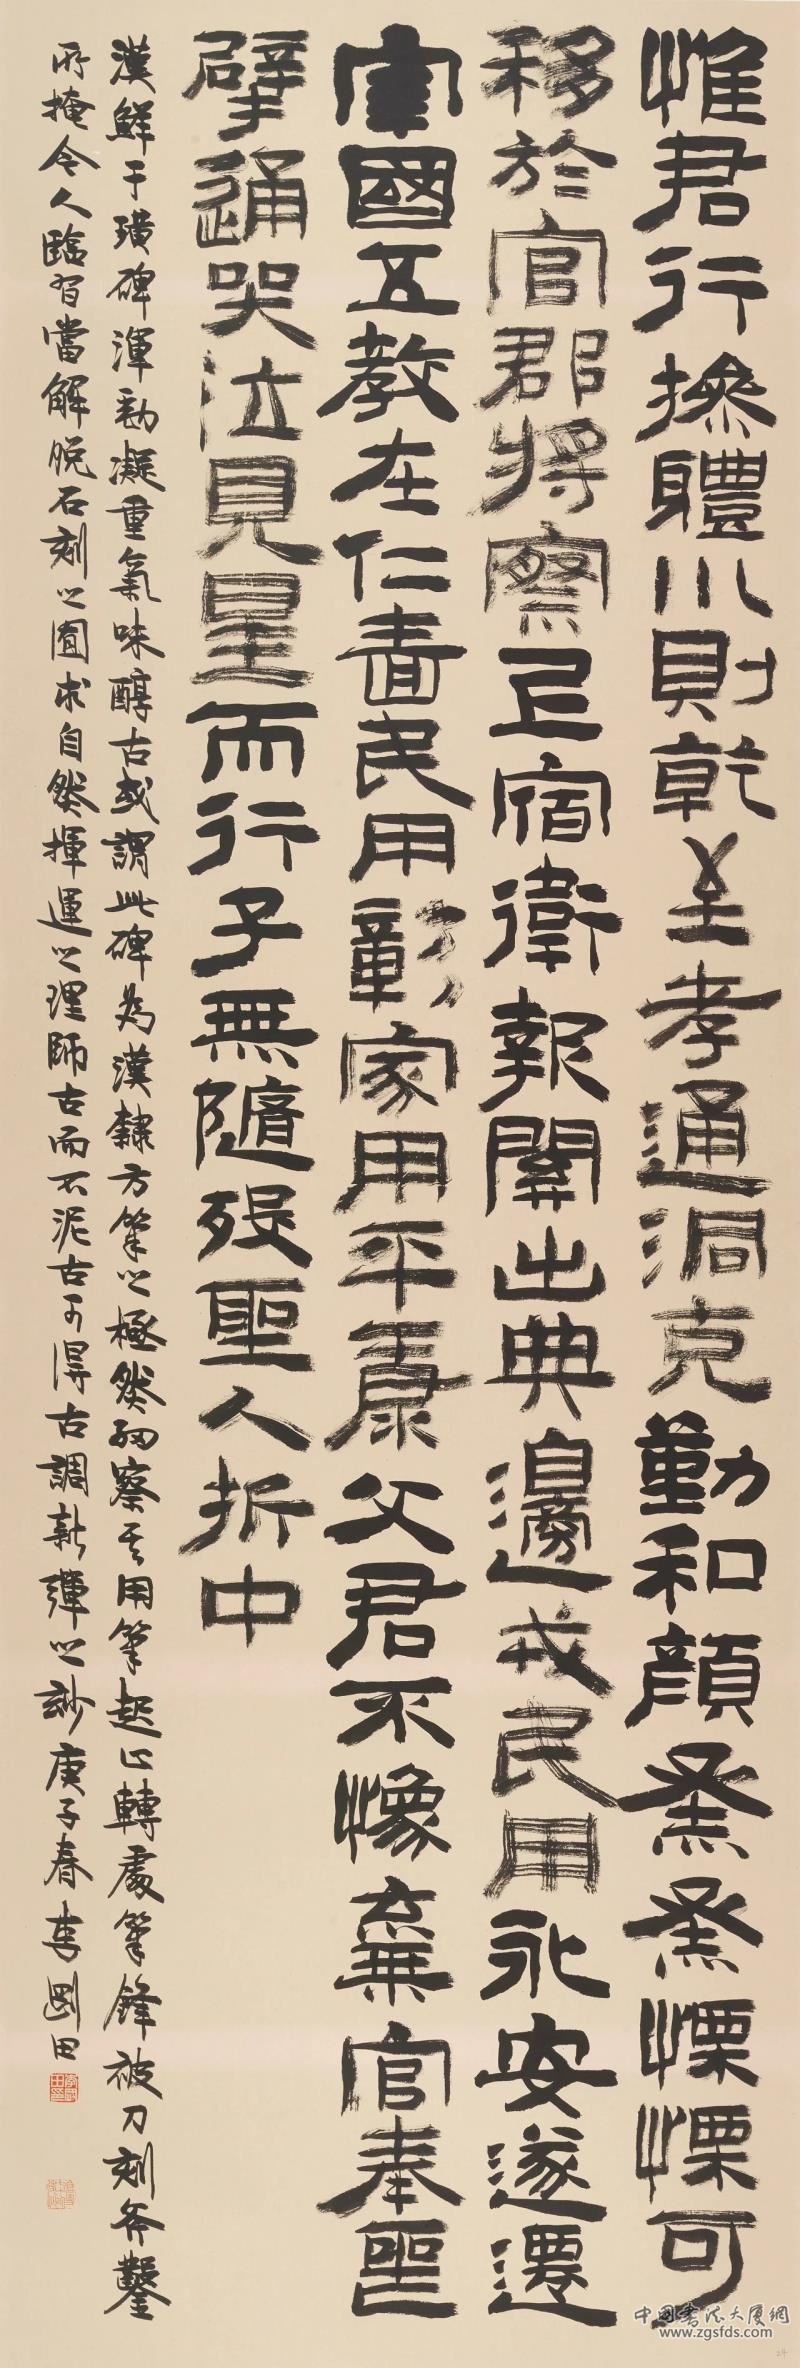 惟君行操體川則乾至孝通洞克勤和顏烝烝慄慄可
移於官郡將察上宿衛報關出典邊戎民用永安遂遷
宰國五教在仁嗇民用彰家用平康父君不像棄官奉喪
擗踊哭泣見星而行子無隨殁聖人折中
漢鮮于璜碑渾勁凝重氣味醇古或謂此碑為漢隸方筆之極然細察其用筆起止轉處筆鋒被刀刻斧鑿
所掩今人臨習當解脫石刻之囿求自然揮運之理師古而不泥古方得古調新彈之妙庚子春李剛田
中国书法大厦網
www.zgsfds.com
24